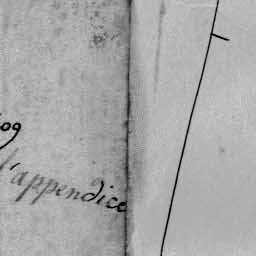 09
l'appendice